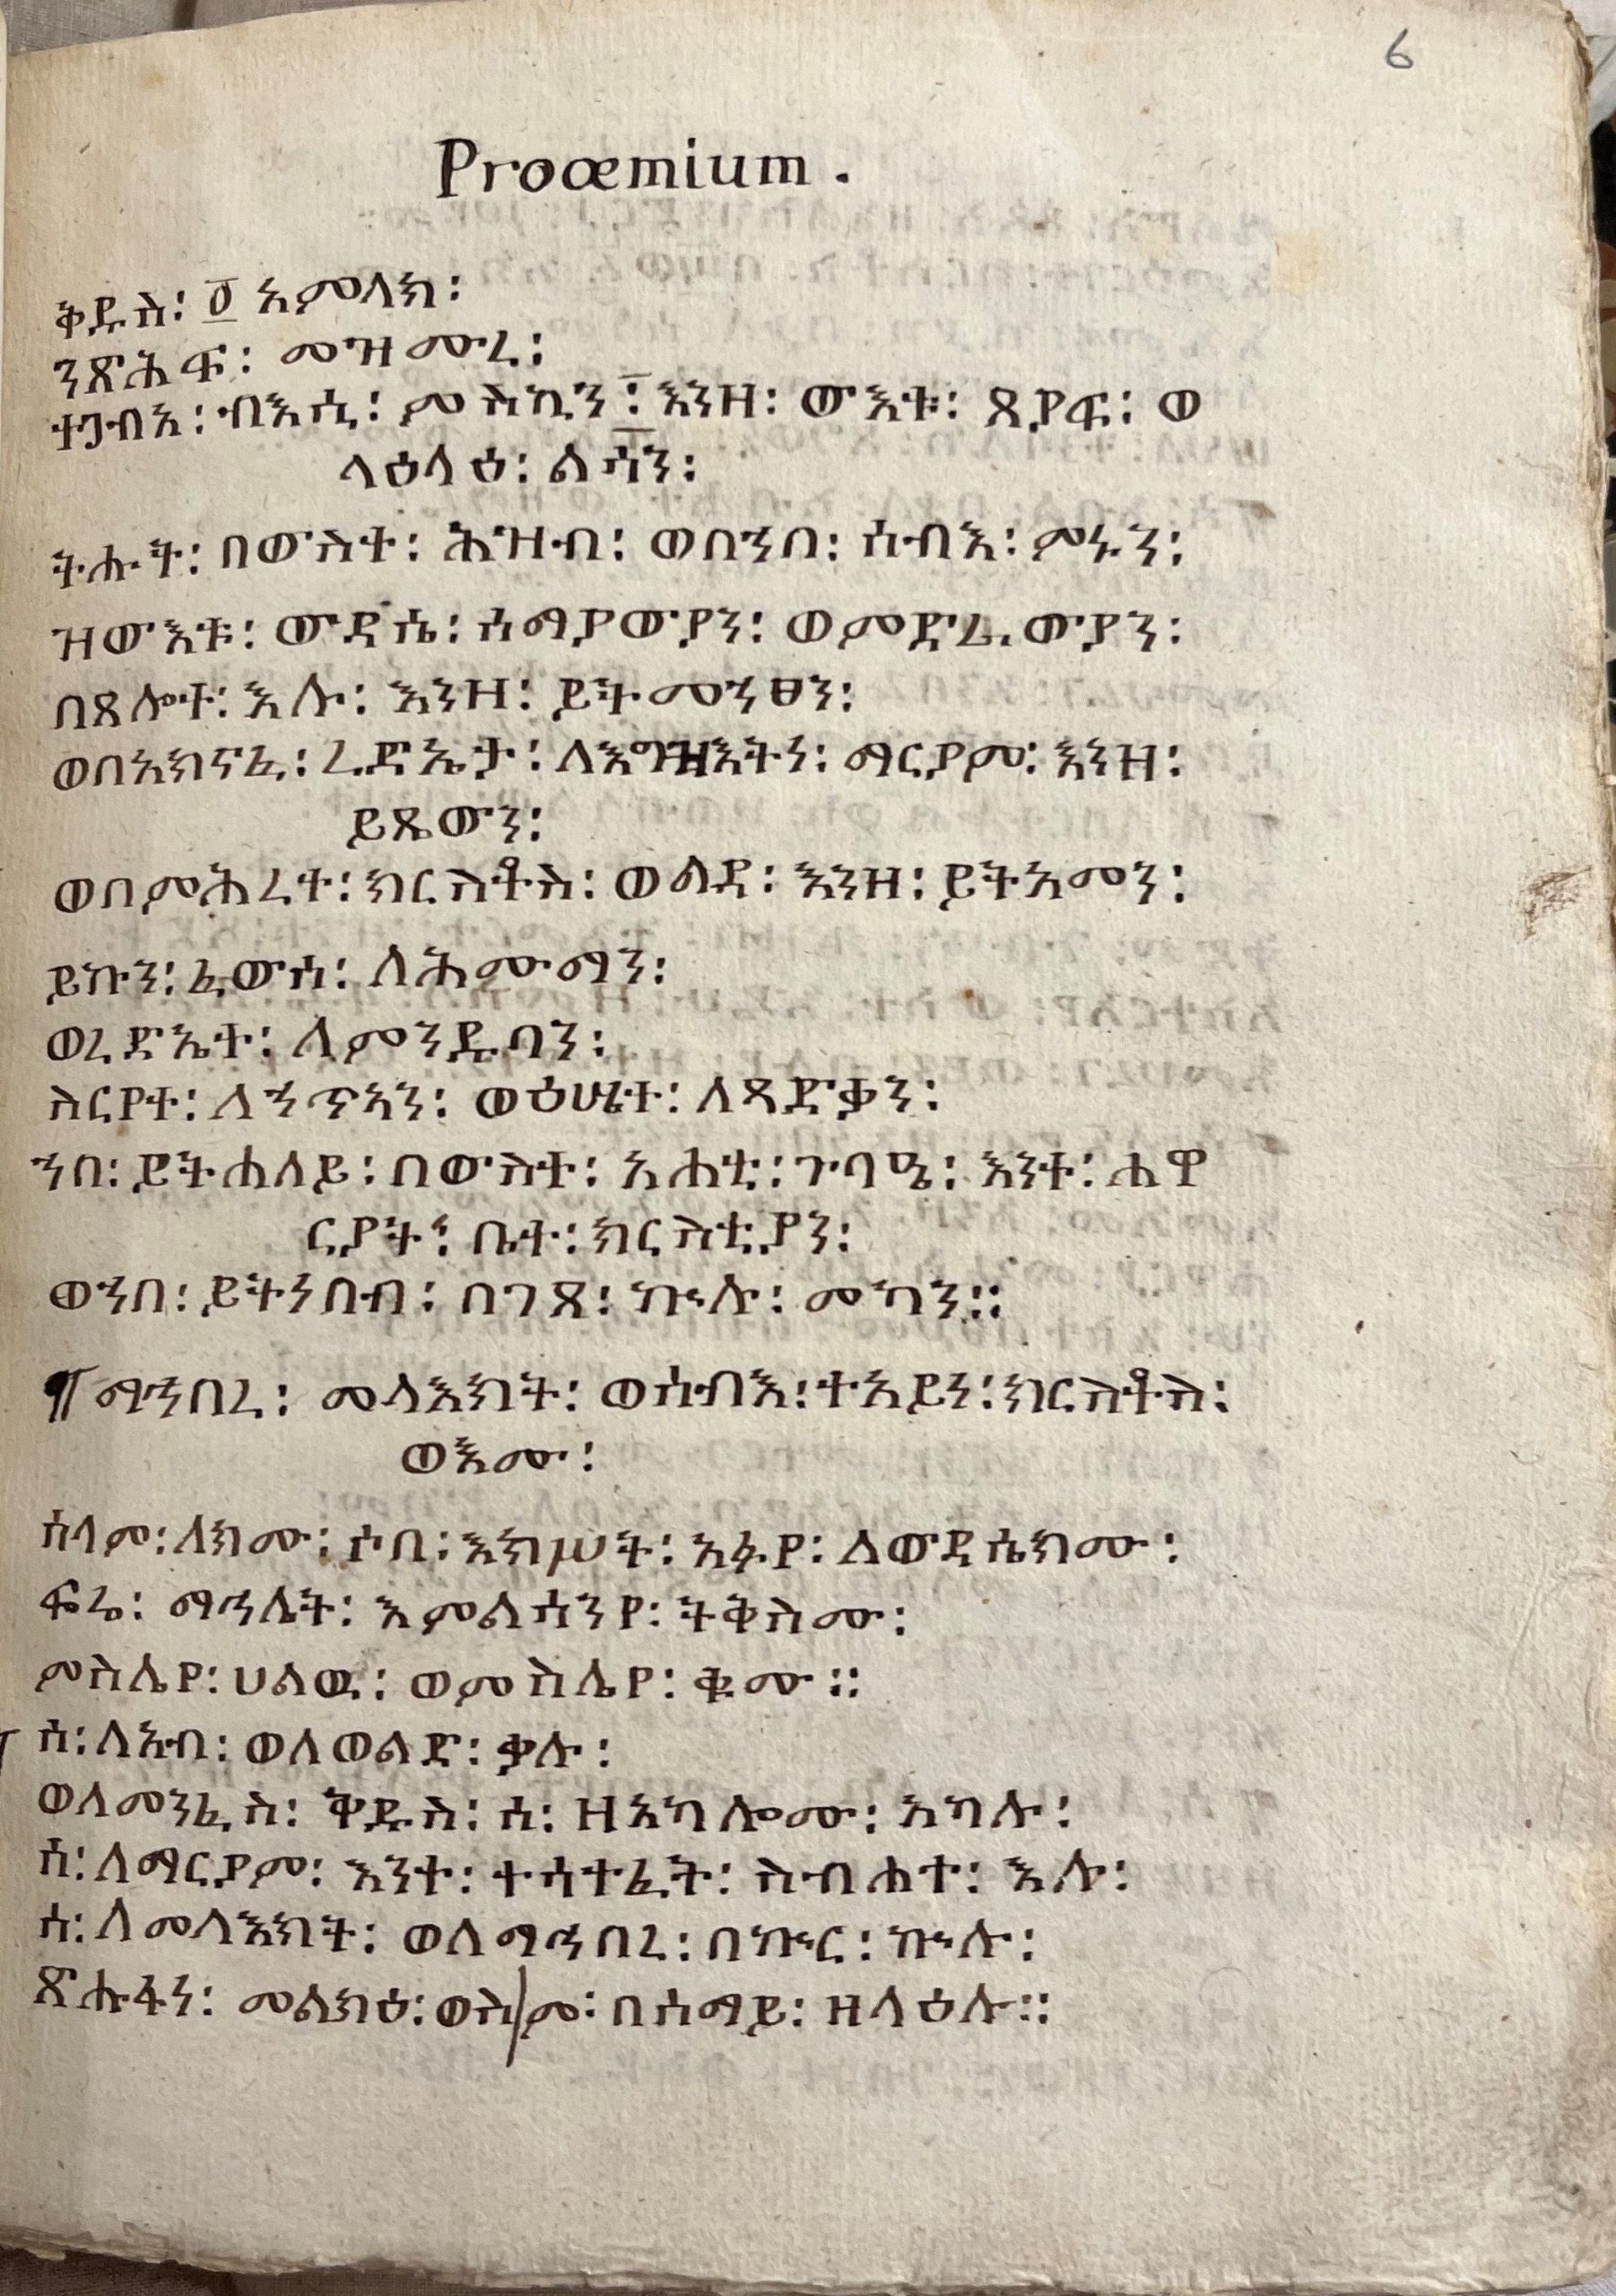 6
Proœmium.
ቅዱስ፡ ፩ አምላክ፡
ንጽሕፍ፡ መዝሙረ፡
ተጋብአ፡ ብእሲ፡ ምስኪን፡ እንዘ፡ ውእቱ፡ ጸያፍ፡ ወ
ላዕላዕ፡ ልሳን፡
ትሑት፡ በውስተ፡ ሕዝብ፡ ወበኀበ፡ ሰብእ፡ ምኑን፡
ዝውእቱ፡ ውዳሴ፡ ሰማያውያን፡ ወምድራውያን፡
በጸሎተ፡ እሉ፡ እንዘ፡ ይትመኀፀን፡
ወበአክናፈ፡ ረድኤታ፡ ለእግዝእትነ፡ ማርያም፡ እንዘ፡
ይጼውን፡
ወበምሕረተ፡ ክርስቶስ፡ ወልዳ፡ እንዘ፡ ይትአመን፡
ይኩን፡ ፈውሰ፡ ለሕሙማን፡
ወረድኤተ፡ ለምንዱባን፡
ስርየተ፡ ለኀጥኣን፡ ወዕሤተ፡ ለጻድቃን፡
ኀበ፡ ይትሐለይ፡ በውስተ፡ አሐቲ፡ ጉባዔ፡ እንተ፡ ሐዋ
ርያት፡ ቤተ፡ ክርስቲያን፡
ወኀበ፡ ይትነበብ፡ በገጸ፡ ኵሉ፡ መካን።
¶ ማኅበረ፡ መላእክት፡ ወሰብእ፡ ተአይነ፡ ክርስቶስ፡
ወእሙ፡
ሰላም፡ ለክሙ፡ ሶበ፡ እክሥት፡ አፉየ፡ ለውዳሴክሙ፡
ፍሬ፡ ማኅሌት፡ እምልሳንየ፡ ትቅስሙ፡
ምስሌየ፡ ሀልዉ፡ ወምስሌየ፡ ቁሙ።
ሰ፡ ለአብ፡ ወለወልድ፡ ቃሉ፡
ወለመንፈስ፡ ቅዱስ፡ ሰ፡ ዘአካሎሙ፡ አካሉ፡
ሰ፡ ለማርያም፡ እንተ፡ ተሳተፈት፡ ስብሐተ፡ እሉ፡
ሰ፡ ለመላእክት፡ ወለማኅበረ፡ በኵር፡ ኵሉ፡
ጽሑፋነ፡ መልክዕ፡ ወስም፡ በሰማይ፡ ዘላዕሉ።